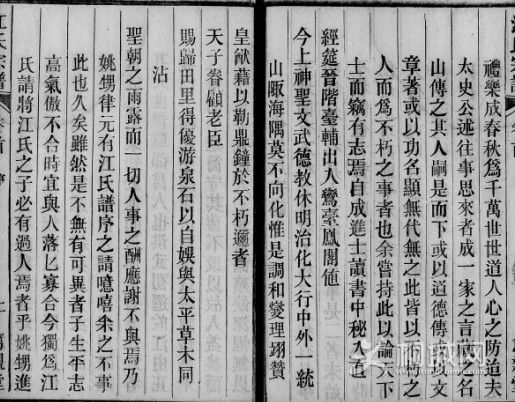 江氏宗譜
禮樂成春秋爲千萬世世道人心之防迨夫
太史公述往事思來者成一家之言藏之名
山傳之其人嗣是而下或以道德傳或以文
章著或以功名顯無代無之此皆以不朽之
人而爲不朽之事者也余嘗持此以論天下
士而竊有志焉自成進士讀書中秘入邑
經筵晉階臺輔出入鸞臺鳳閣值
今上神聖文武德教休明治化大行中外一統
山陬海隅莫不向化惟是調和燮理翊贊
皇猷藉以勒鼎鐘於不朽邇者
天子眷顧老臣
賜歸田里得優游泉石以自娛與太平草木同
沾
聖朝之雨露而一切人事之酬應謝不與焉乃
姚甥律元有江氏譜序之請噫嘻余之不事
此也久矣雖然是不無有可異者子生平志
高氣傲不合時宜與人落匕寡合今獨爲江
氏請將江氏之子必有過人焉者乎姚甥進
江氏宗譜
序
桐城网